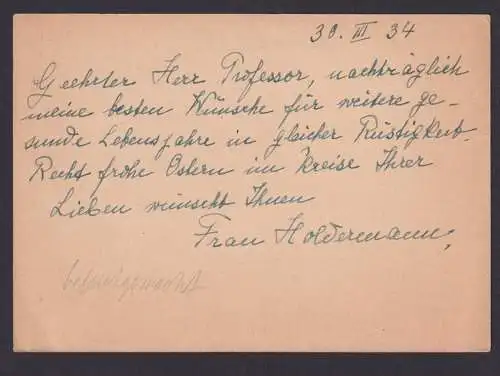 30. III 34
Geehrter Herr Professor, nachträglich
meine besten Wünsche für weitere ge-
sunde Lebensjahre in gleicher Rüstigkeit.
Recht frohe Ostern im Kreise Ihrer
Lieben wünscht Ihnen
Frau Holdermann,